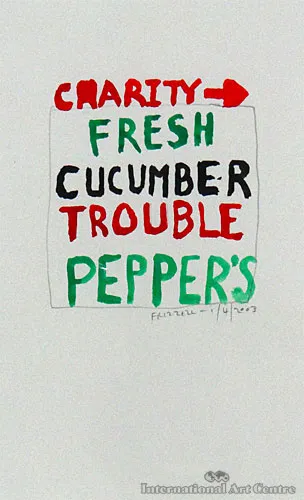 CHARITY →
FRESH
CUCUMBER
TROUBLE
PEPPER'S
FRIZZELL - 1/4/2003
International Art Centre